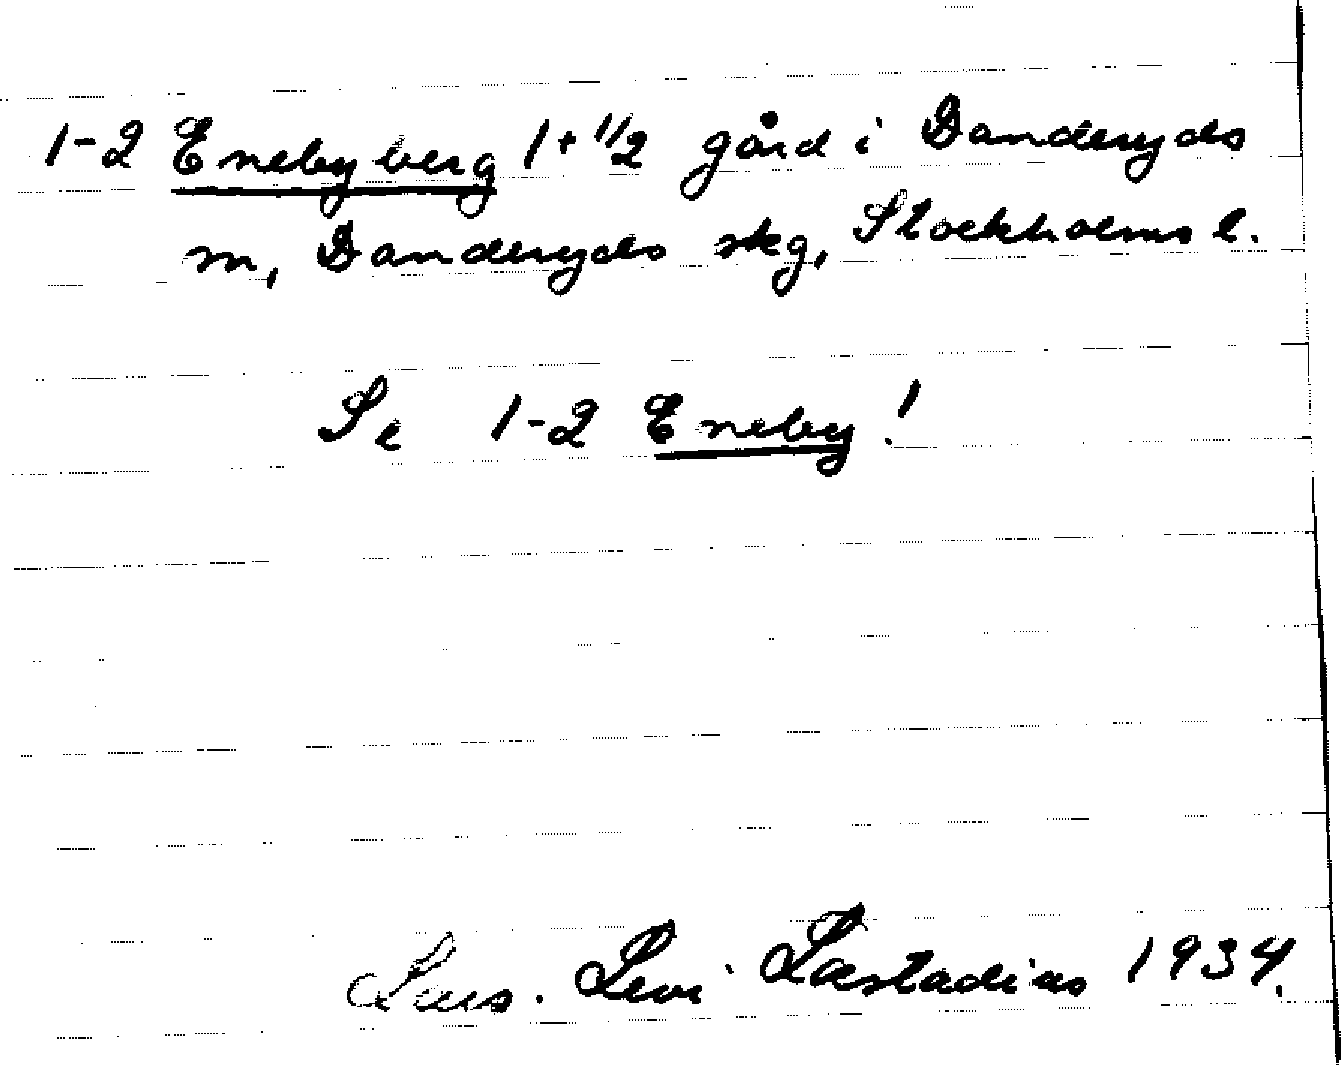 1-2 Enebyberg 1+1/2 gård i Danderyds
sn, Danderyds skg, Stockholms l.
Se 1-2 Eneby!
Lars. Levi Læstadius 1934.